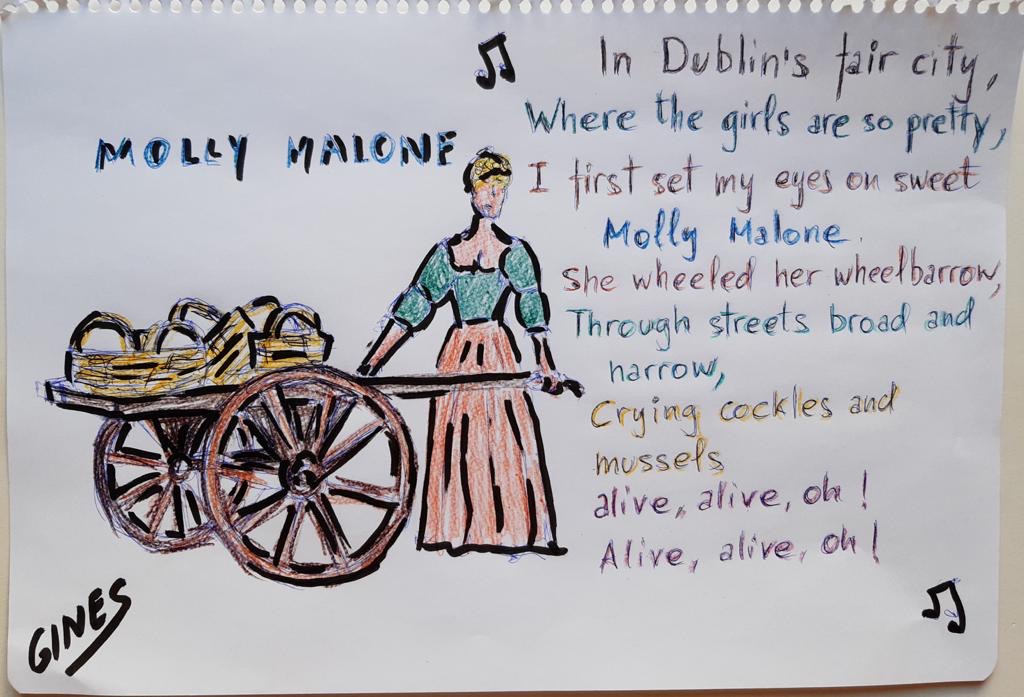 MOLLY MALONE
In Dublin's fair city,
Where the girls are so pretty,
I first set my eyes on sweet
Molly Malone.
She wheeled her wheelbarrow,
Through streets broad and
narrow,
Crying cockles and
mussels
alive, alive, oh !
Alive, alive, oh !
GINES